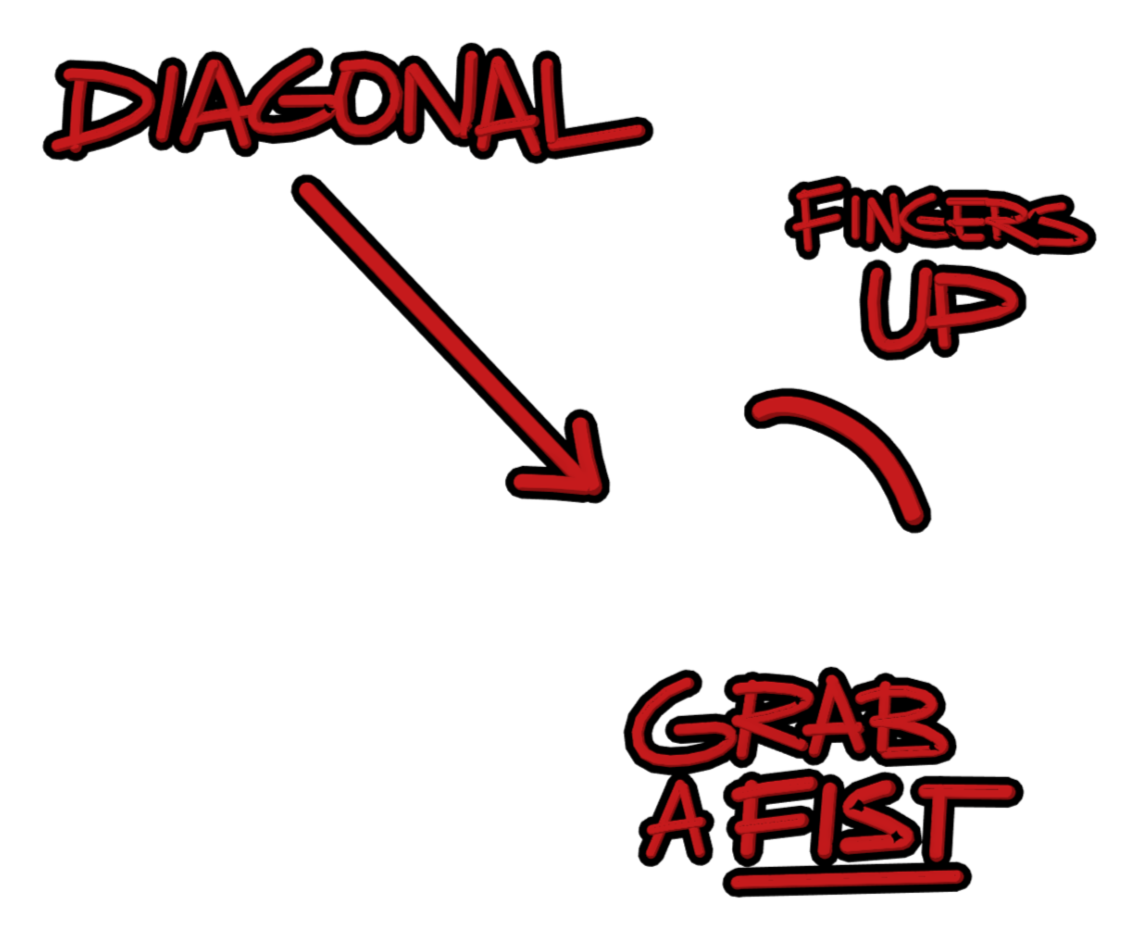 DIAGONAL
FINGERS
UP
GRAB
A FIST